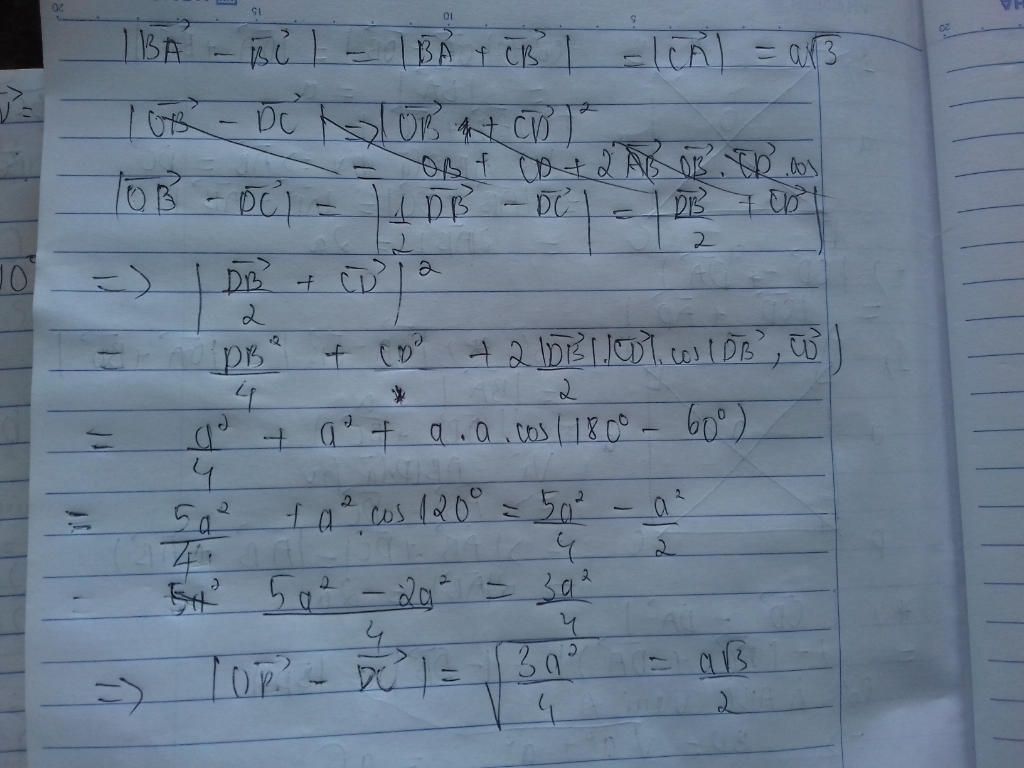 |BA⃗ - BC⃗| = |BA⃗ + CB⃗| = |CA⃗| = a√3
|OB⃗ - DC⃗| => |OB⃗ + CD⃗|²
= OB + CD + 2 AB OB⃗ . CD⃗ . cos
|OB⃗ - DC⃗| = |1/2 DB⃗ - DC⃗| = |DB⃗/2 + CD⃗|
=> |DB⃗/2 + CD⃗|²
= DB²/4 + CD² + 2 |DB⃗|/2 . |CD⃗| . cos(DB⃗, CD⃗)
= a²/4 + a² + a . a . cos(180° - 60°)
= 5a²/4 + a² . cos 120° = 5a²/4 - a²/2
= 5a² (5a² - 2a²)/4 = 3a²/4
=> |OB⃗ - DC⃗| = √(3a²/4) = a√3/2